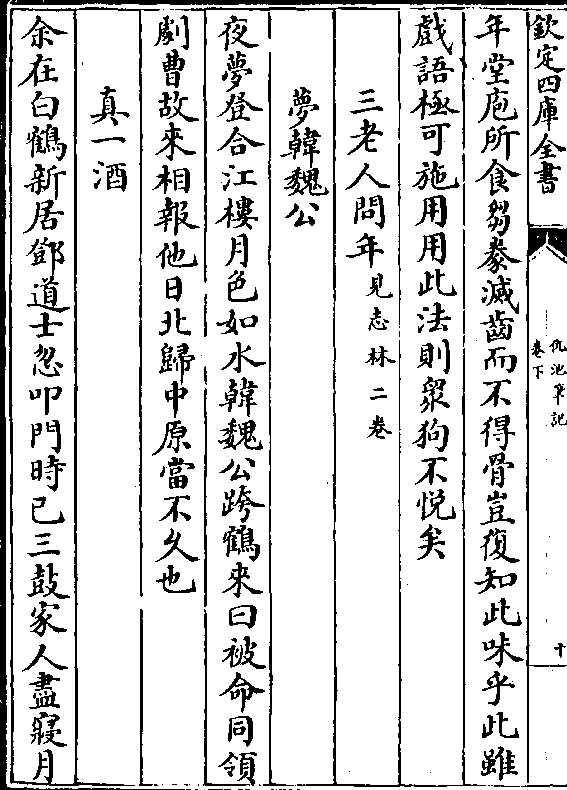 欽定四庫全書
仇池筆記
卷下
十
年堂庖所食芻豢滅齒而不得骨豈復知此味乎此雖
戲語極可施用用此法則衆狗不悦矣
三老人問年見志林二卷
夢韓魏公
夜夢登合江樓月色如水韓魏公跨鶴來曰被命同領
劇曹故來相報他日北歸中原當不久也
真一酒
余在白鶴新居鄧道士忽叩門時已三鼓家人盡寢月